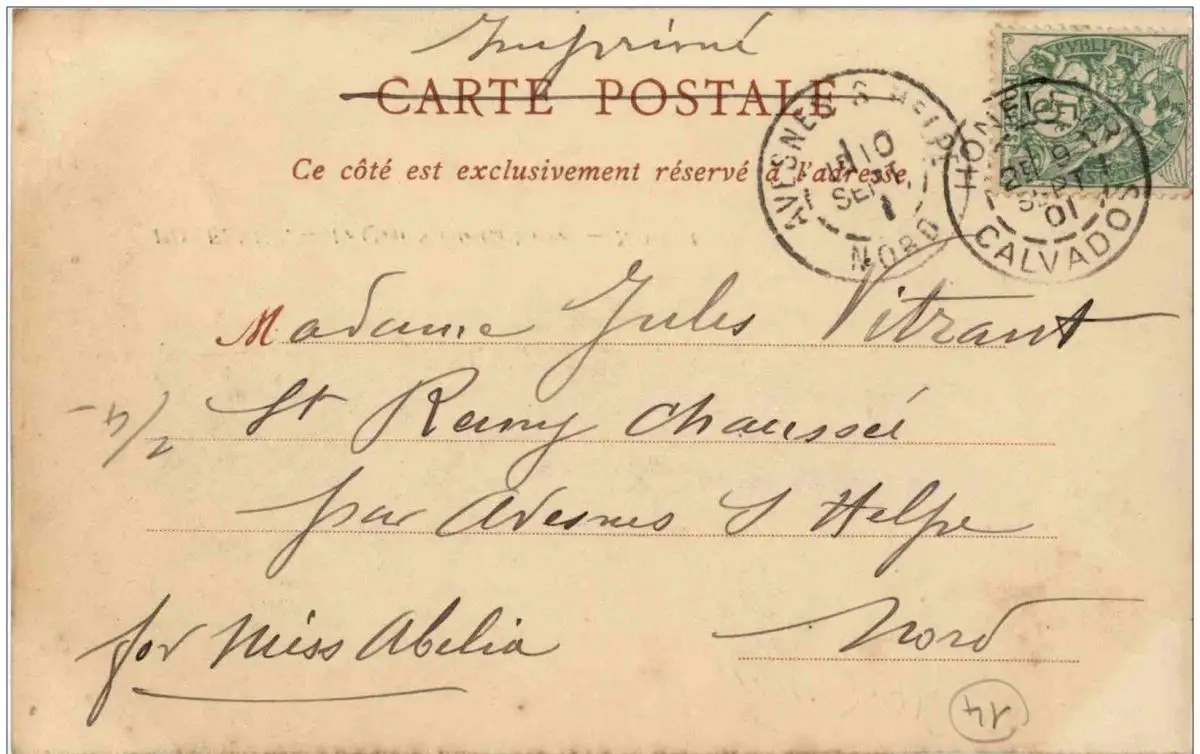 Imprimé
CARTE POSTALE
Ce côté est exclusivement réservé à l'adresse
RÉPUBLIQUE
5
AVESNES S HELPE
10
SEPT.
1
NORD
HONFLEUR
9
SEPT
01
CALVADOS
Madame Jules Vitrant
St Remy Chaussée
par Avesnes S Helpe
Nord
for Miss Abelia
14